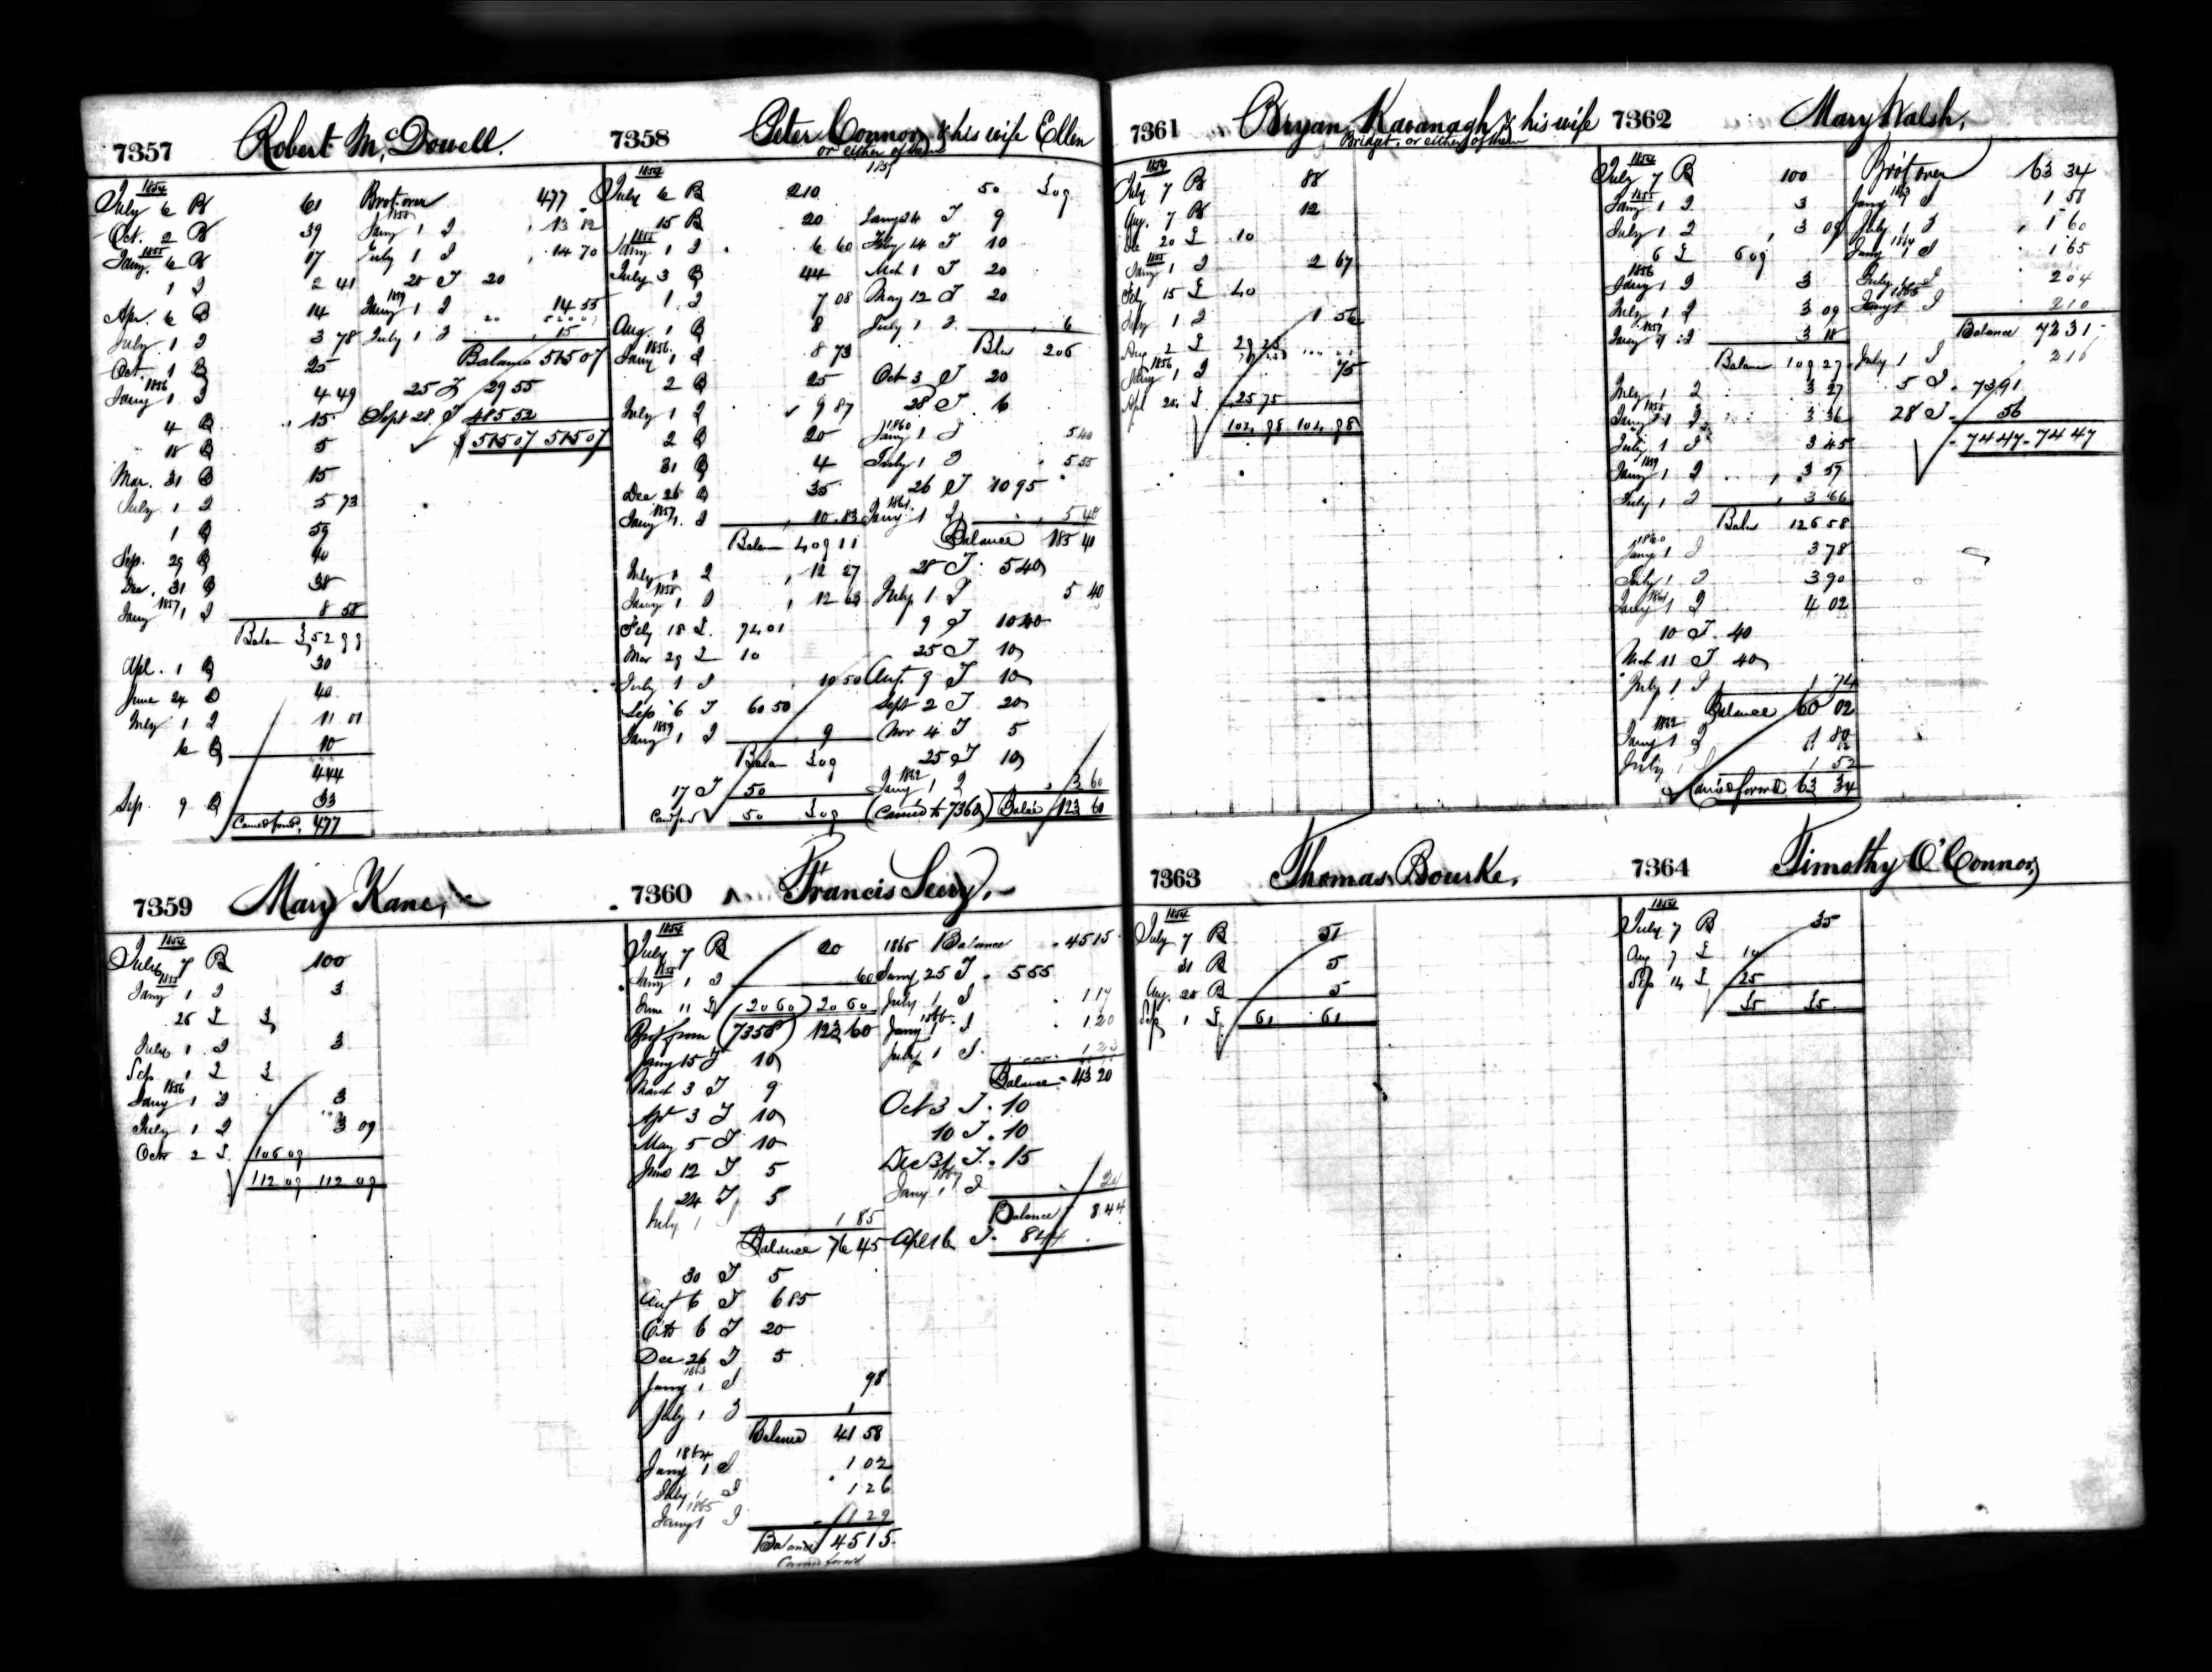 7357 Robert McDowell.
1854
July 6 B 61
Oct. 2 B 39
1855
Jany. 6 B 17
1 I 2 41
Apr. 6 B 14
July 1 I 3 78
Oct. 1 B 25
1856
Jany 1 I 4 49
4 B 15
18 B 5
Mar. 31 B 15
July 1 I 5 73
1 B 59
Sep. 29 B 40
Dec. 31 B 38
1857
Jany 1 I 8 58
Balan 352 99
Apl. 1 B 30
June 24 B 40
July 1 I 11 01
6 B 10
444
Sep. 9 B 33
Carried ford. 477
Brot over 477
1858
Jany 1 I 13 82
July 1 I 14 70
25 T 20
1859
Jany 1 I 14 55
July 1 I 15
Balance 515 07
25 T 29 55
Sept 28 T 485 52
515 07 515 07
7358 Peter Connor & his wife Ellen
or either of them
1854
July 6 B 210
15 B 20
1855
Jany 1 I 6 60
July 3 B 44
1 I 7 08
Aug. 1 B 8
1856
Jany 1 I 8 73
2 B 25
July 1 I 9 87
2 B 20
31 B 4
Dec 26 B 35
1857
Jany 1 I 10 83
Balan 409 11
July 1 I 12 27
1858
Jany 1 I 12 63
Feby 18 T 74 01
Mar 29 T 10
July 1 I 10 50
Sep 6 T 60 50
1859
Jany 1 I 9
Balan 309
17 T 50
Card ford 50 309
1859
50 309
Jany 24 T 9
Feby 14 T 10
Mch 1 T 20
May 12 T 20
July 1 I 6
Blce 206
Oct 3 T 20
28 T 6
1860
Jany 1 I 5 40
July 1 I 5 55
26 T 10 95
1861
Jany 1 I 5 40
Balance 185 40
28 T 5 40
July 1 I 5 40
9 T 10 40
25 T 10
Aug. 9 T 10
Sept 2 T 20
Nov 4 T 5
25 T 10
1862
Jany 1 I 3 60
(Carried to 7360) Balce 123 60
7359 Mary Kane,
1854
July 7 B 100
1855
Jany 1 I 3
26 T 3
July 1 I 3
Sep 1 T 3
1856
Jany 1 I 3
July 1 I 3 09
Octr 2 T 106 09
112 09 112 09
7360 Francis Seery,
1854
July 7 B 20
1855
Jany 1 I 60
June 11 T (20 60) 20 60
Brot from (7358) 123 60
Jany 15 T 10
March 3 T 9
Apl 3 T 10
May 5 T 10
June 12 T 5
24 T 5
July 1 I 1 85
Balance 76 45
30 T 5
Augt 6 T 6 85
Octo 6 T 20
Dec 26 T 5
1863
Jany 1 I 98
July 1 I 1
Balance 41 58
1864
Jany 1 I 1 02
July 1 I 1 26
1865
Jany 1 I 1 29
Balance 45 15
Carried forwd
1865 Balance 45 15
Jany 25 T 5 55
July 1 I 1 17
1866
Jany 1 I 1 20
July 1 I
Balance 43 20
Oct 3 T 10
10 T 10
Dec 31 T 15
1867
Jany 1 I
Balance 8 44
Apl 16 T 8 44
7361 Bryan Kavanagh & his wife
Bridget, or either of them
1854
July 7 B 88
Aug. 7 B 12
Dec 20 T 10
1855
Jany 1 I 2 67
Feby 15 T 40
July 1 I 1 56
Aug 2 T
1856
Jany 1 I 75
Apl 28 T 25 75
104 98 104 98
7362 Mary Walsh,
1854
July 7 B 100
1855
Jany 1 I 3
July 1 I 3 09
6 T 6 09
1856
Jany 1 I 3
July 1 I 3 09
1857
Jany 1 I 3 18
Balance 109 27
July 1 I 3 27
1858
Jany 1 I 3 36
July 1 I 3 45
1859
Jany 1 I 3 57
July 1 I 3 66
Balce 126 58
1860
Jany 1 I 3 78
July 1 I 3 90
1861
Jany 1 I 4 02
10 T 40
Mch 11 T 40
July 1 I 1 74
Balance 60 02
1862
Jany 1 I 1 80
July 1 I 1 52
Carried forwd 63 34
Brot over 63 34
1863
Jany 1 I 1 58
July 1 I 1 60
1864
Jany 1 I 1 65
July 1 I 2 04
1865
Jany 1 I 2 10
Balance 72 31
July 1 I 2 16
5 T 73 91
28 T 56
74 47 74 47
7363 Thomas Bourke,
1854
July 7 B 51
31 B 5
Aug. 28 B 5
Sep 1 T 61 61
7364 Timothy O'Connor,
1854
July 7 B 35
Aug 7 T 10
Sep 14 T 25
35 35